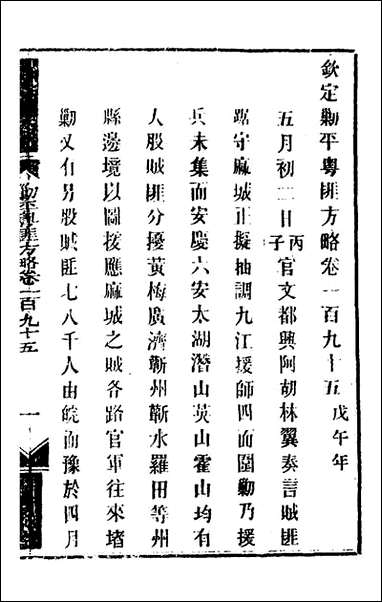 欽定勦平粵匪方略卷一百九十五戊午年
五月初二日丙子官文都興阿胡林翼奏言賊匪
踞守麻城正擬抽調九江援師四面圍勦乃援
兵未集而安慶六安太湖潛山英山霍山均有
大股賊匪分擾黃梅廣濟蘄州蘄水羅田等州
縣邊境以圖援應麻城之賊各路官軍往來堵
勦又有另股賊匪七八千人由皖而豫於四月
勦平粵匪方略卷一百九十五
一